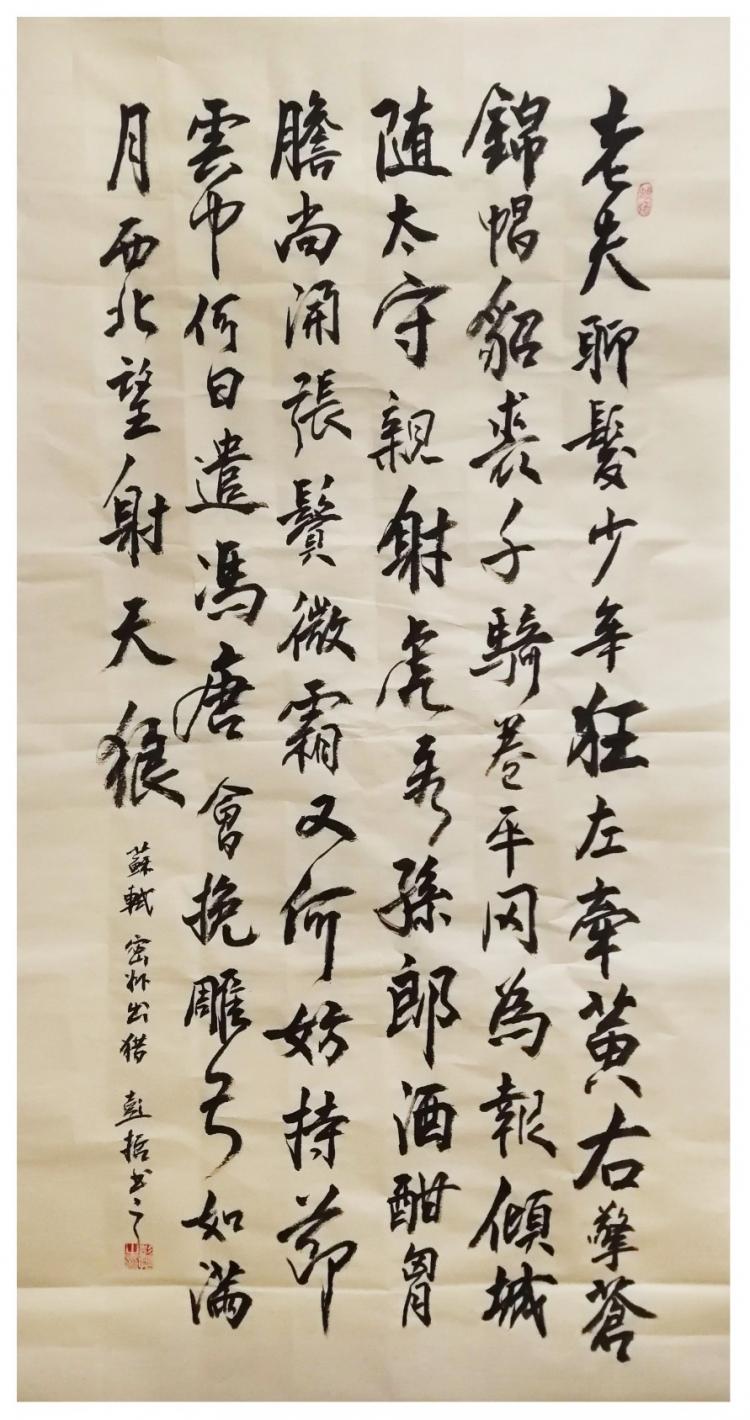 老夫聊髮少年狂左牽黃右擎蒼
錦帽貂裘千騎卷平冈為報傾城
随太守親射虎看孫郎酒酣胷
膽尚開張鬢微霜又何妨持節
雲中何日遣馮唐會挽雕弓如满
月西北望射天狼
蘇軾 密州出猎 彭哲书之